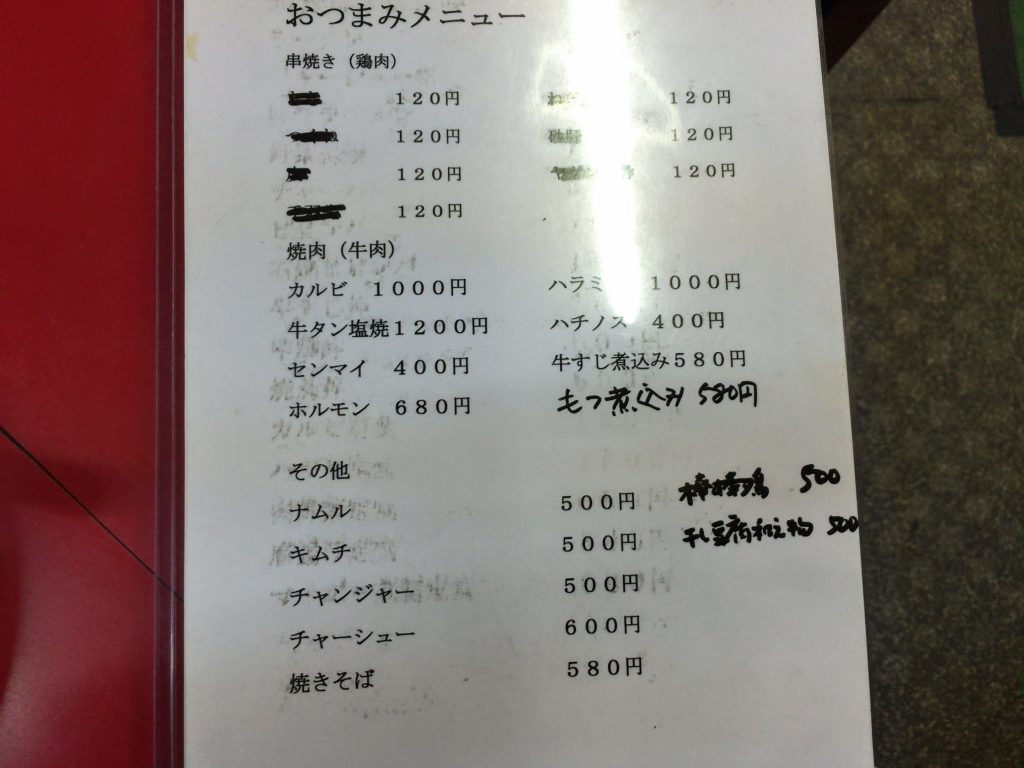 おつまみメニュー
串焼き（鶏肉）
１２０円 １２０円
１２０円 砂肝 １２０円
１２０円 １２０円
１２０円
焼肉（牛肉）
カルビ １０００円 ハラミ １０００円
牛タン塩焼１２００円 ハチノス ４００円
センマイ ４００円 牛すじ煮込み５８０円
ホルモン ６８０円 もつ煮込み 580円
その他
ナムル ５００円 棒棒鶏 500
キムチ ５００円 干し豆腐和え物 500
チャンジャー ５００円
チャーシュー ６００円
焼きそば ５８０円